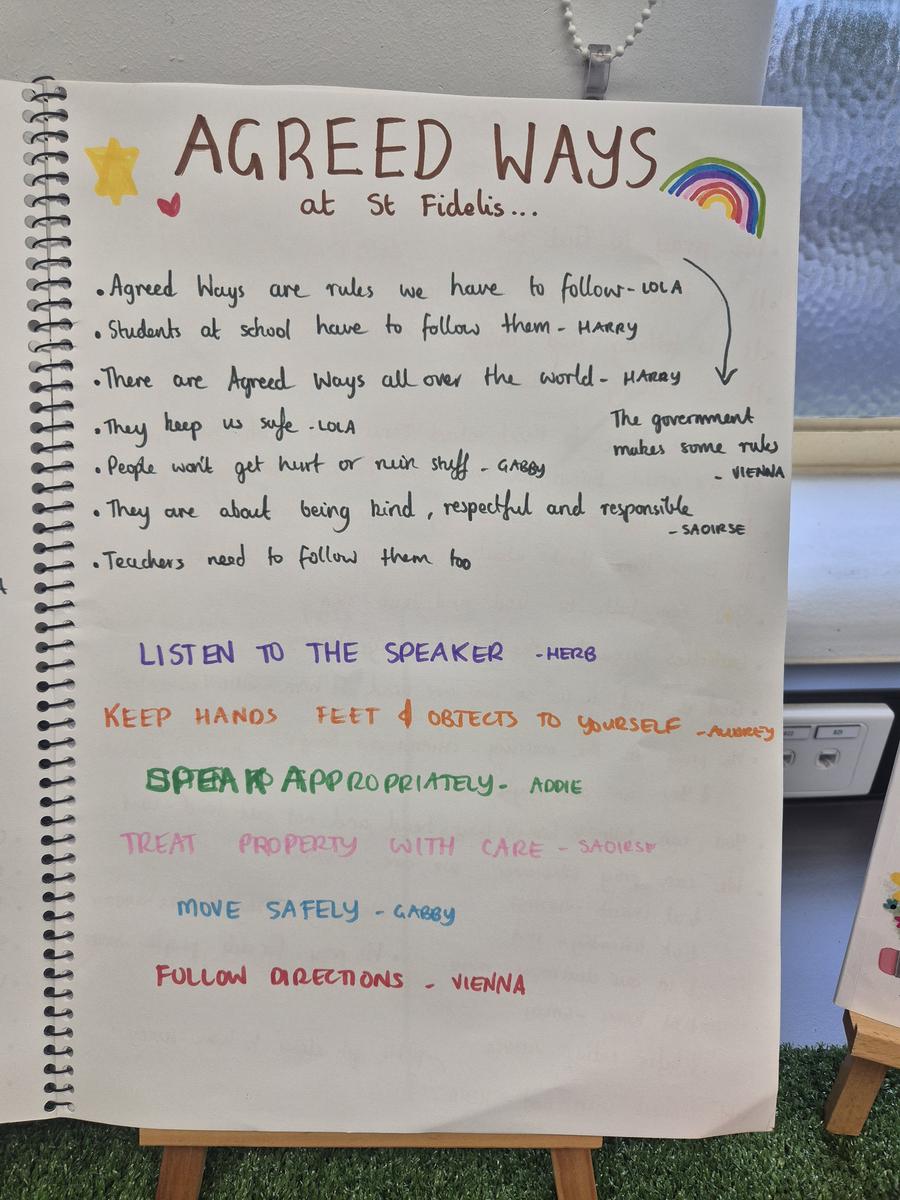 AGREED WAYS
at St Fidelis...
• Agreed Ways are rules we have to follow - LOLA
• Students at school have to follow them - HARRY
• There are Agreed Ways all over the world - HARRY
The government
makes some rules
- VIENNA
• They keep us safe - LOLA
• People won't get hurt or ruin stuff - GABBY
• They are about being kind, respectful and responsible
- SAOIRSE
• Teachers need to follow them too
LISTEN TO THE SPEAKER - HERB
KEEP HANDS FEET & OBJECTS TO YOURSELF - AUDREY
SPEAK APPROPRIATELY - ADDIE
TREAT PROPERTY WITH CARE - SAOIRSE
MOVE SAFELY - GABBY
FOLLOW DIRECTIONS - VIENNA